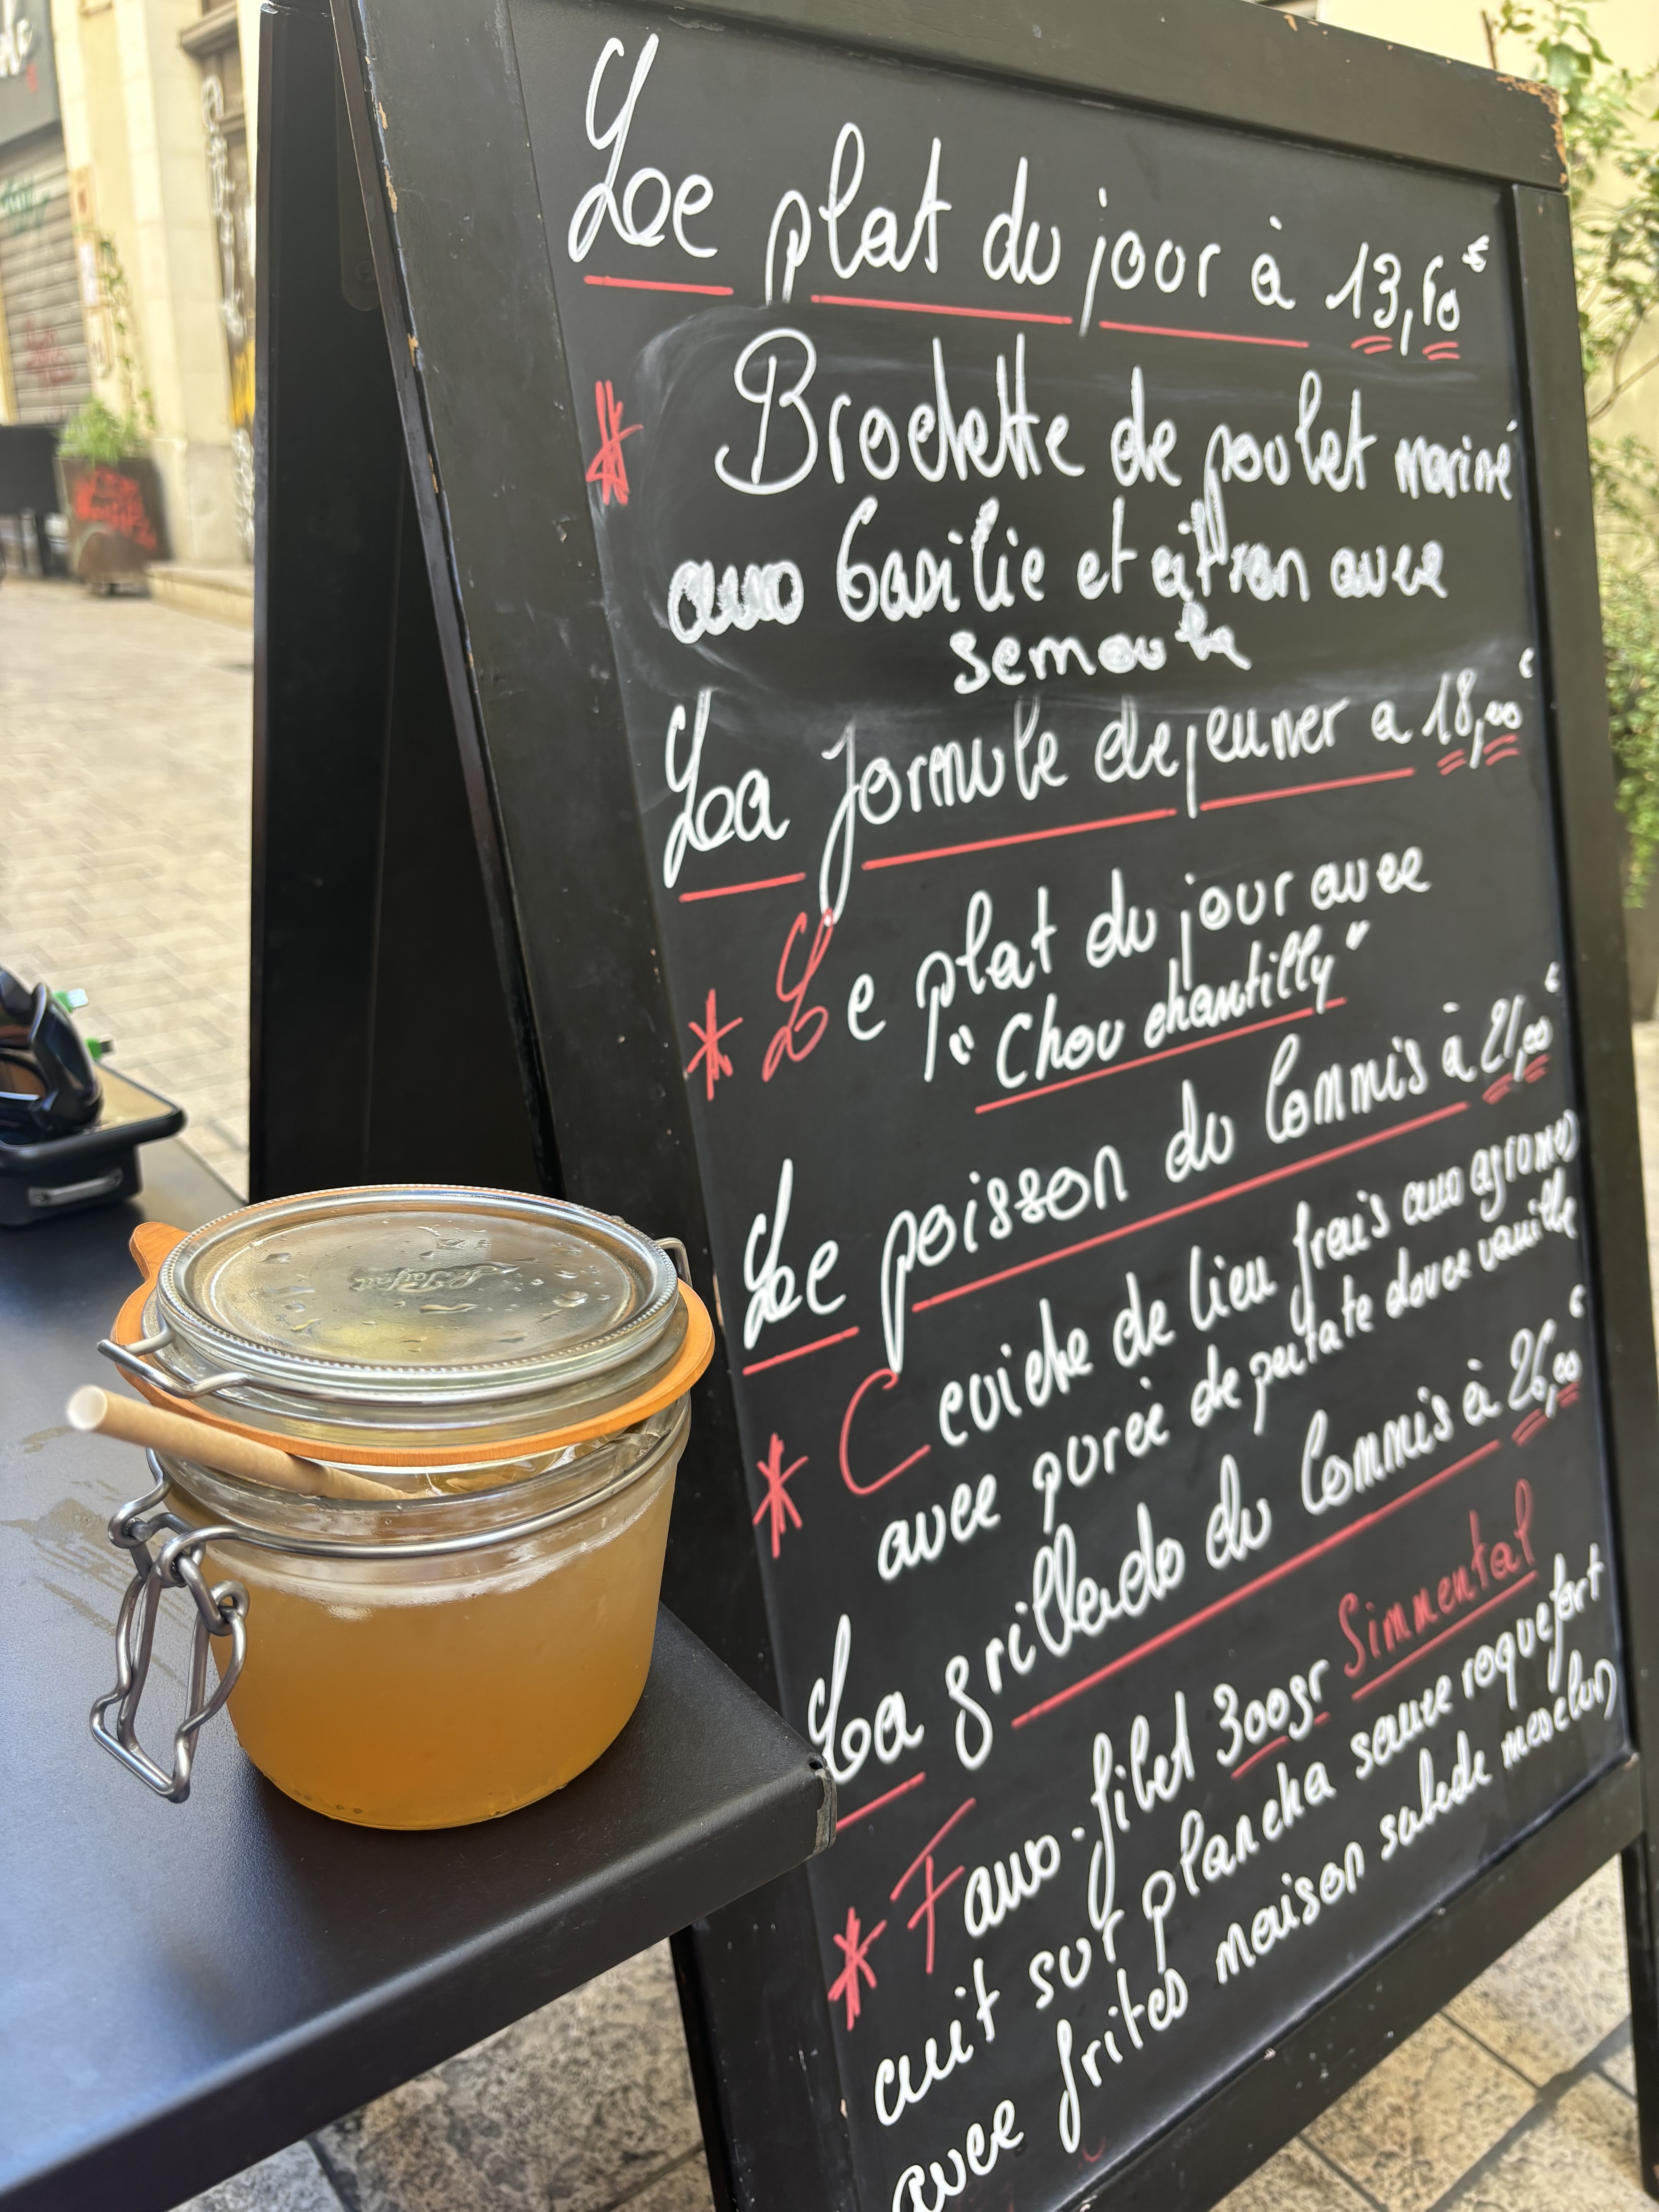 Le plat du jour à 13,50€
* Brochette de poulet mariné
aux basilic et citron avec
semoule
La formule dejeuner a 18,00€
* Le plat du jour avec
"Chou chantilly"
Le poisson du Commis à 21,00€
* Ceviche de lieu frais aux agrumes
avec purée de patate douce vanille
La grillade du Commis à 26,00€
* Faux-filet 300gr Simmental
cuit sur plancha sauce roquefort
avec frites maison salade mesclun
Le Parfait